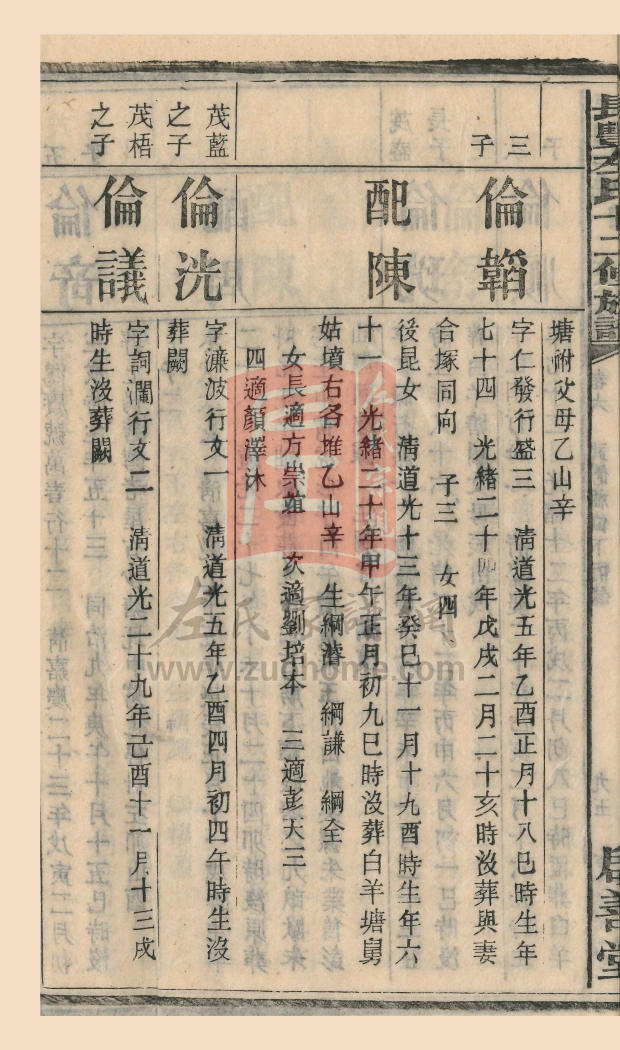 長豐左氏十二修族譜
居善堂
塘祔父母乙山辛
三子
倫韜
字仁發行盛三 清道光五年乙酉正月十八巳時生年
七十四 光緒二十四年戊戌二月二十亥時沒葬與妻
合塚同向 子三 女四
配陳
後昆女 清道光十三年癸巳十一月十九酉時生年六
十一 光緒二十年甲午正月初九巳時沒葬白羊塘舅
姑墳右各堆乙山辛 生綱濬 綱謙 綱全
女長適方崇 次適劉培本 三適彭天三
四適顏澤沐
茂藍之子
倫洸
字濂波行文一 清道光五年乙酉四月初四午時生沒
葬闕
茂梧之子
倫議
字詞瀾行文二 清道光二十九年己酉十一月十三戌
時生沒葬闕
左氏家譜網
www.zuohome.com